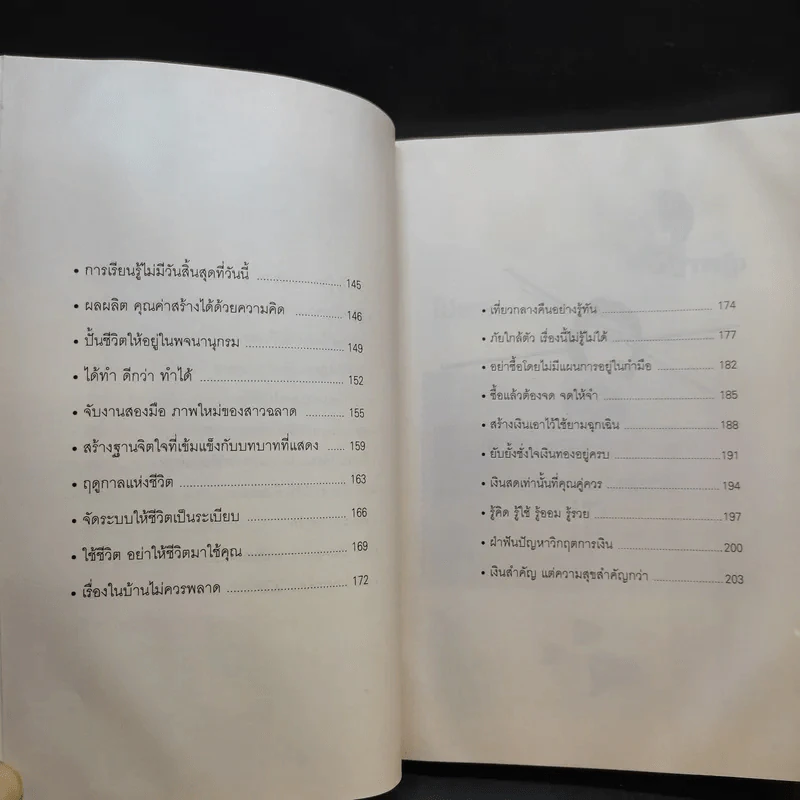 • การเรียนรู้ไม่มีวันสิ้นสุดที่วันนี้ ........................ 145
• ผลผลิต คุณค่าสร้างได้ด้วยความคิด ............. 146
• ปั้นชีวิตให้อยู่ในพจนานุกรม ........................ 149
• ได้ทำ ดีกว่า ทำได้ ................................ 152
• จับงานสองมือ ภาพใหม่ของสาวฉลาด ........... 155
• สร้างฐานจิตใจที่เข้มแข็งกับบทบาทที่แสดง ...... 159
• ฤดูกาลแห่งชีวิต ..................................... 163
• จัดระบบให้ชีวิตเป็นระเบียบ ....................... 166
• ใช้ชีวิต อย่าให้ชีวิตมาใช้คุณ ....................... 169
• เรื่องในบ้านไม่ควรพลาด ........................... 172
• เที่ยวกลางคืนอย่างรู้ทัน ............................. 174
• ภัยใกล้ตัว เรื่องนี้ไม่รู้ไม่ได้ .......................... 177
• อย่าซื้อโดยไม่มีแผนการอยู่ในกำมือ ............... 182
• ซื้อแล้วต้องจด จดให้จำ ............................. 185
• สร้างเงินเอาไว้ใช้ยามฉุกเฉิน ........................ 188
• ยับยั้งชั่งใจเงินทองอยู่ครบ .......................... 191
• เงินสดเท่านั้นที่คุณคู่ควร ............................ 194
• รู้คิด รู้ใช้ รู้ออม รู้รวย ............................... 197
• ฝ่าฟันปัญหาวิกฤตการเงิน .......................... 200
• เงินสำคัญ แต่ความสุขสำคัญกว่า .................. 203